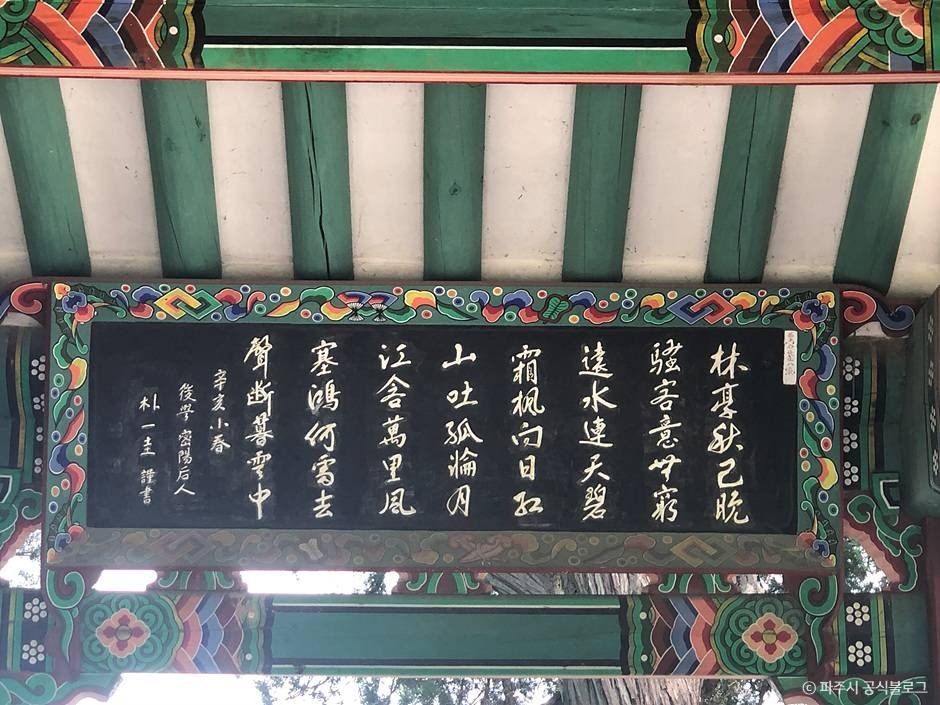 林亭秋已晩
騷客意無窮
遠水連天碧
霜楓向日紅
山吐孤輪月
江含萬里風
塞鴻何處去
聲斷暮雲中
辛亥小春
後學密陽后人
朴一圭 謹書
© 파주시 공식블로그